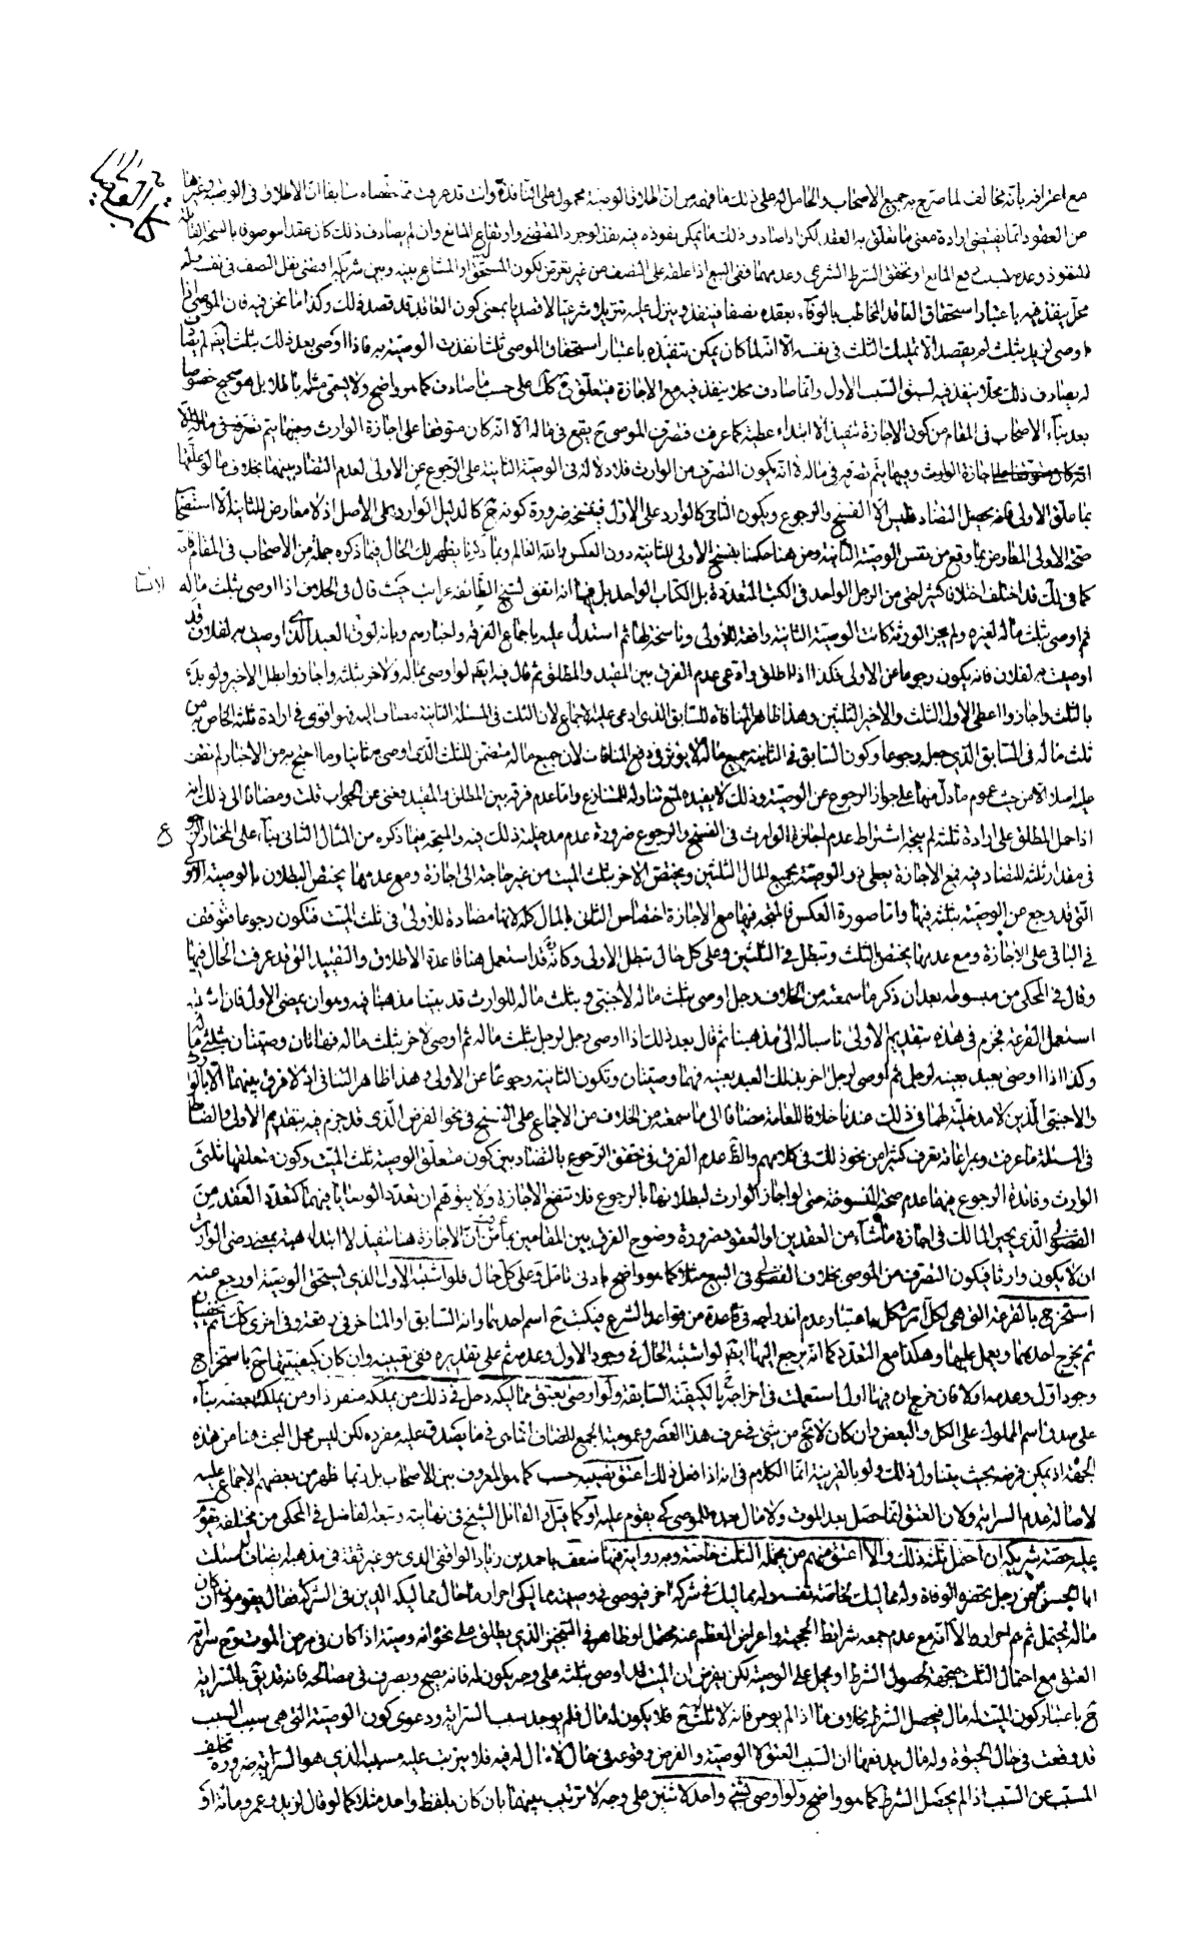 كتاب الوصايا
مع اعترافه بأنه مخالف لما صرح به جميع الاصحاب والحامل له على ذلك ما فهمه من ان اطلاق الوصية محمول على النافذة وانت قد عرفت مما حققناه سابقا ان الاطلاق في الوصية وغيرها
من العقود انما يقتضى ارادة معنى ما تعلق به العقد لكن اذا صادف ذلك ما يمكن نفوذه فيه نفذ لوجود المقتضى وارتفاع المانع وان لم يصادف ذلك كان عقدا موصوفا بالصحة القابلة
للنفوذ وعدمه رفع المانع او تحقق الشرط الشرعي وعدمهما ففي البيع اذا علقه على النصف من غير تعرض لكون المستحق او المشاع بينه وبين شريكه اقتضى نقل النصف في نفسه
محل ينفذ فيه باعتبار استحقاق العاقد المخاطب بالوفاء بعقده نصفا فينفذ وينزل عليه تنزيلا شرعيا لا قصديا بمعنى كون العاقد قد قصد ذلك وكذا ما نحن فيه فان الموصى اذا
اوصى لزيد بثلث لم يقصد الا تمليك الثلث في نفسه الا انه لما كان يمكن تنفيذه باعتبار استحقاق الموصى ثلثا نفذت الوصية به فاذا اوصى بعد ذلك بثلث ايضا لم يقصد
لم يصادف ذلك محلا ينفذ فيه لسبق السبب الاول وانما صادف محلا ينفذ فيه مع الاجازة فيتعلق به كل على حسب ما صادف كما هو واضح ولا يسمى مثله باطلا بل هو صحيح خصوصا
بعد بناء الاصحاب في المقام من كون الاجازة تنفيذا لا ابتداء عطية كما عرفت فتصرف الموصى ح يقع في ماله الا انه كان متوقفا على اجازة الوارث
اجازة الوارث وفيها يتم تصرفه في ماله لا انه يكون التصرف من الوارث فلا دلالة في الوصية الثانية على الرجوع عن الاولى لعدم التضاد بينهما بخلاف ما لو علقها
بما علق الاولى فانه يحصل التضاد فليس الا الفسخ والرجوع ويكون الثاني كالوارد على الاول فيفسخه ضرورة كونه ح كالدليل الوارد على الاصل اذ لا معارض للثانية الا استصحاب
صحة الاولى المعارض بما وقع من نفس الوصية الثانية ومن هنا حكمنا بفسخ الاولى للثانية دون العكس والله العالم وبما ذكرنا يظهر لك الحال فيما ذكره جملة من الاصحاب في المقام فانه
كما في لك قد اختلف اختلافا كثيرا حتى من الرجل الواحد في الكتب المتعددة بل الكتاب الواحد بل فيها انه اتفق لشيخ الطائفة غرائب حيث قال في الخلاف اذا اوصى بثلث ماله لانسان
ثم اوصى بثلث ماله لغيره ولم يجز الورثة كانت الوصية الثانية رافعة للاولى وناسخة لها ثم استدل عليه باجماع الفرقة واخبارهم وبانه لو قال العبد الذي اوصيت به لفلان قد
اوصيت به لفلان فانه يكون رجوعا عن الاولى فكذا اذا اطلق وادعى عدم الفرق بين المقيد والمطلق ثم قال فيه ايضا لو اوصى بماله ولآخر بثلثه واجازوا بطل الاخير ولو بدء
بالثلث واجازوا اعطى الاول الثلث والاخير الثلثين وهذا ظاهر المنافاة للسابق الذي ادعى عليه الاجماع لان الثلث في المسئلة الثانية مضاف اليه فهو اقوى في ارادة ثلثه الخاص به من
ثلث ماله في السابق الذي جعل رجوعا وكون السابق في الثانية جميع ماله لا يؤثر في دفع المنافات لان جميع ماله متضمن للثلث الذي اوصى به ثانيا وما احتج به من الاخبار لم نقف
عليه اصلا الا من حيث عموم ما دل منها على جواز الرجوع عن الوصية وذلك لا يفيده لمنع تناوله للتنازع واما عدم فرقه بين المطلق والمقيد فغنى عن الجواب قلت ومضافا الى ذلك انه
اذا حمل المطلق على ارادة ثلثه لم يتجه اشتراط عدم اجازة الوارث في الفسخ والرجوع ضرورة عدم مدخلية ذلك فيه والمتجه فيما ذكره من المثال الثاني بناء على المختار الرجوع
في مقدار ثلثه للتضاد فيه فمع الاجازة يعطى ذو الوصية بجميع المال الثلثين ويختص الآخر بثلث الميت من غير حاجة الى اجازة ومع عدمها يختص البطلان بالوصية الاولى
التي قد رجع عن الوصية بثلثه فيها واما صورة العكس فالمتجه فيها مع الاجازة اختصاص الثاني بالمال كله لانها مضادة للاولى في ثلث الميت فتكون رجوعا فتوقف
في الباقى على الاجازة ومع عدمها يختص بالثلث وتبطل في الثلثين وعلى كل حال تبطل الاولى وكانه قد استعمل هنا قاعدة الاطلاق والتقييد التي قد عرفت الحال فيها
وقال في المحكى من مبسوطه بعد ان ذكر ما سمعته من الخلاف رجل اوصى بثلث ماله لاجنبى وبثلث ماله للوارث قد بينا مذهبنا فيه وهو ان يمضى الاول فان اشتبه
استعمل القرعة فجزم في هذه بتقديم الاولى ناسبا له الى مذهبنا ثم قال بعد ذلك اذا اوصى رجل لرجل بثلث ماله ثم اوصى لآخر بثلث ماله فهاتان وصيتان بثلثي ماله
وكذا اذا اوصى بعبد بعينه لرجل ثم اوصى لرجل آخر بذلك العبد بعينه فهما وصيتان وتكون الثانية رجوعا عن الاولى وهذا ظاهر التنافى اذ لا فرق بينهما الا بالوارث
والاجنبى الذين لا مدخلية لهما في ذلك عندنا خلافا للعامة مضافا الى ما سمعته من الخلاف من الاجماع على الفسخ في نحو الفرض الذي قد جزم فيه بتقديم الاولى والضابط
في المسئلة ما عرفت وبمراعاته تعرف كثيرا من نحو ذلك في كلامهم والظ عدم الفرق في تحقق الرجوع بالتضاد بين كون متعلق الوصية ثلث الميت وكون متعلقها ثلثي
الوارث وفائدة الرجوع فيها عدم صحة المنسوخة حتى لو اجاز الوارث لبطلانها بالرجوع فلا تنفع الاجازة ولا يتوهم ان تعدد الوصايا فيهما كتعدد العقد من
الفضولى الذي يجيز المالك في اجازة ما شاء من العقدين او العقود ضرورة وضوح الفرق بين المقامين بما عرفت من ان الاجازة هنا تنفيذ لا ابتداء هبة بمعنى رضى الوارث
ان لا يكون وارثا فيكون التصرف من الموصى بخلاف الفضولى في البيع مثلا كما هو واضح بادنى تامل وعلى كل حال فلو اشتبه الاول الذي يستحق الوصية او رجع عنه
استخرج بالقرعة التي هي لكل امر مشكل باعتبار عدم اندراجه في قاعدة من قواعد الشرع فيكتب ح اسم احدهما وانه السابق او المتاخر في رقعة وفي اخرى كك ثم تخفيان
ثم يخرج احدهما ويعمل عليها وهكذا مع التعدد كما انه يرجع اليها ايضا لو اشتبه الحال في وجود الاول وعدمه ثم على تقديره ففي تعيينه وان كان كيفيتها ح باستخراج
وجود اول وعدمه اولا فان خرج ان فيها اول استعملت في اخراجه ح بالكيفية السابقة ولو اوصى بعتق مماليكه دخل في ذلك من يملكه منفردا ومن يملك بعضه بناء
على صدق اسم المملوك على الكل والبعض وان كان لا يخ من شئ في عرف هذا العصر وعمومية الجمع للمضاف انما هي في ما يصدق عليه مفرده لكن ليس محل البحث هنا من هذه
الجهة اذ يمكن فرضه بحيث يتناول ذلك ولو بالقرينة انما الكلام في انه اذا فعل ذلك اعتق نصيبه حسب كما هو المعروف بين الاصحاب بل ربما ظهر من بعضهم الاجماع عليه
لاصالة عدم السراية ولان العتق انما حصل بعد الموت ولا مال بعده للموصى كى يقوم عليه او كما قيل والقائل الشيخ في نهايته وتبعه الفاضل في المحكى من مختلفه يقوم
عليه حصة شريكه ان احتمل ثلثه ذلك والا اعتق منهم من يحمله الثلث خاصة وبه رواية فيها ضعف باحمد بن زياد الواقفى الذي هو غير ثقة في مذهبه ايضا قال سئلت
ابا الحسن ع عن رجل يحضره الوفاة وله مماليك لخاصة نفسه وله مماليك في شركة رجل آخر فيوصى في وصيته مماليكى احرار ما حال مماليكه الذين في الشركة فقال يقومون ان كان
ماله يحتمل ثم هم احرار والا انه مع عدم جمعه شرايط الحجية واعراض المعظم عنه محتمل لو ظاهر في التنجيز الذي يطلق على نحوه انه وصية اذا كان في مرض الموت وتقع سراية
العتق مع احتمال الثلث متجهة لحصول الشرط او يحمل على الوصية لكن يفرض ان الميت قد اوصى بثلثه على وجه يكون له فانه يصح ويصرف في مصالحه فانه قد يق بالسراية
ح باعتبار كون الميت له مال فيحصل الشرط بخلاف ما اذا لم يوص فانه لا ثلث له ح فلا يكون له مال فلم يوجد سبب السراية ودعوى كون الوصية التي هي سبب السبب
قد وقعت في حال الحيوة وله مال يدفعها ان السبب العتق لا الوصية والفرض وقوعه في حال لا مال له فيه فلا يترتب عليه مسببه الذي هو السراية ضرورة تخلف
المسبب عن السبب اذا لم يحصل الشرط كما هو واضح ولو اوصى بشئ واحد لاثنين على وجه لا ترتيب بينهما بان كان بلفظ واحد مثلا كما لو قال لزيد وعمرو مائة او